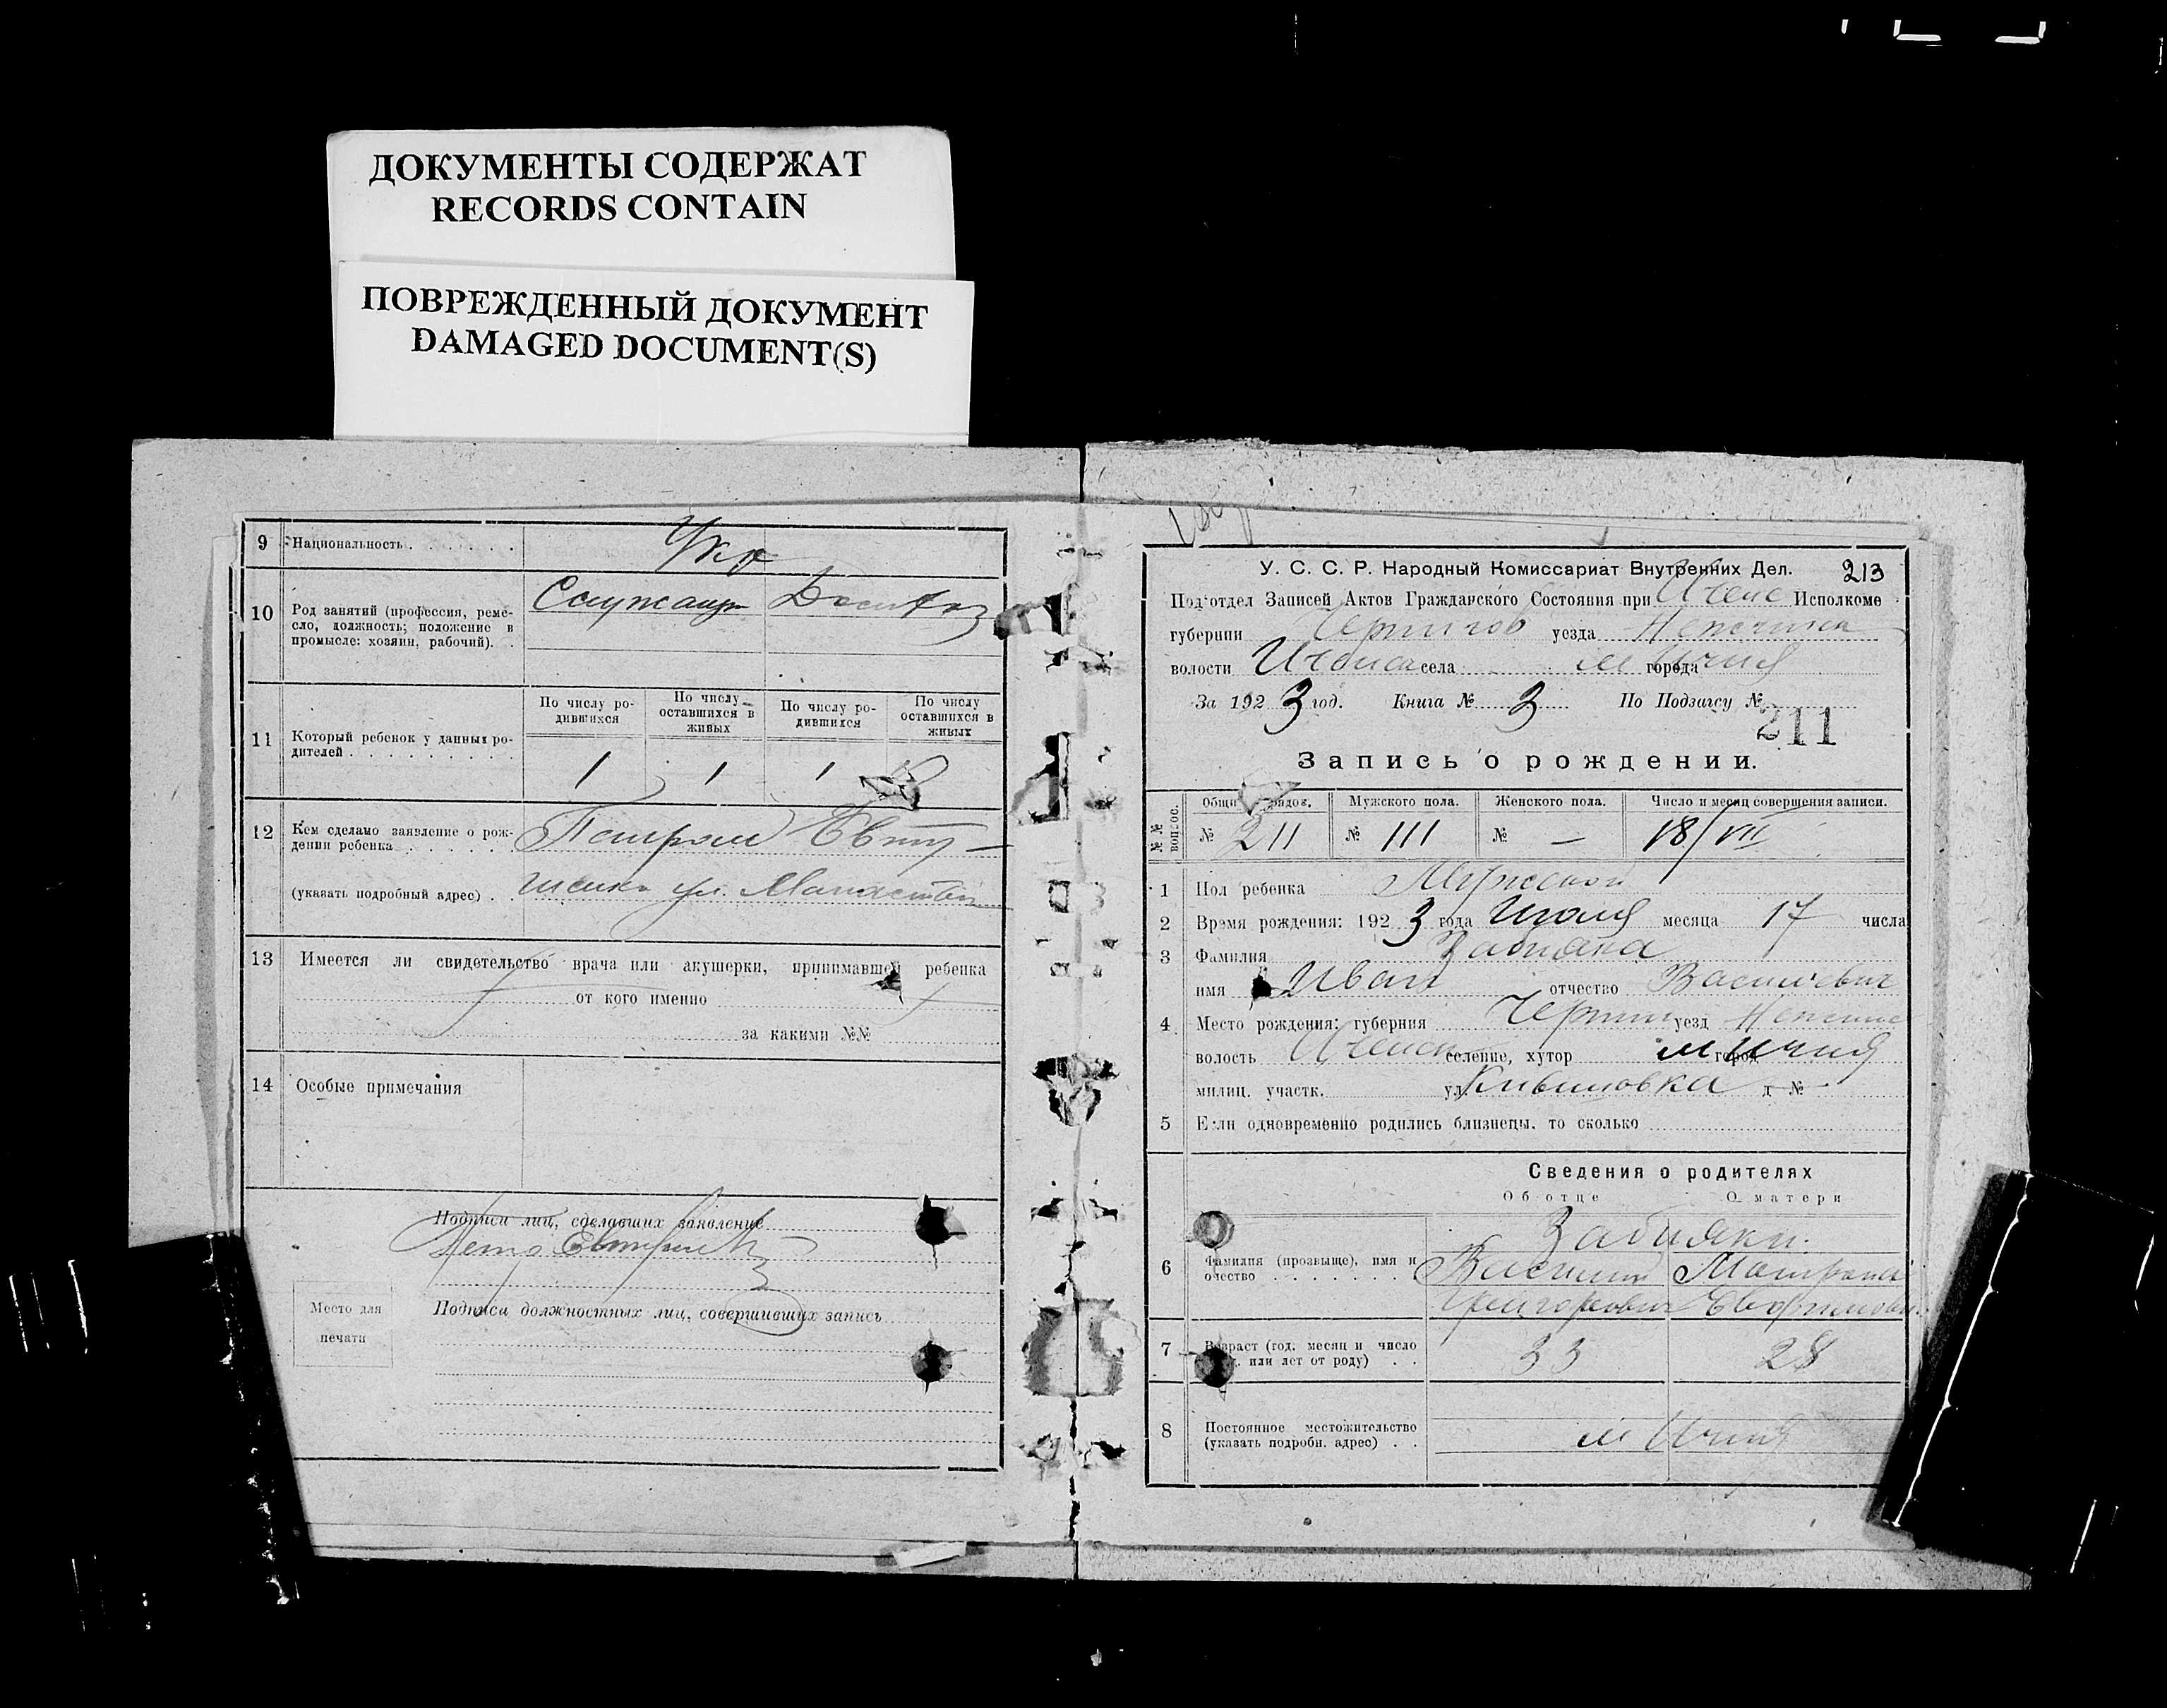 ДОКУМЕНТЫ СОДЕРЖАТ
RECORDS CONTAIN
ПОВРЕЖДЕННЫЙ ДОКУМЕНТ
DAMAGED DOCUMENT(S)
9 Национальность . . . . . . . Укр
10 Род занятий (профессия, реме-
сло, должность; положение в
промысле: хозяин, рабочий). .
Служащ Домохоз
По числу ро-
дившихся
По числу
оставшихся в
живых
По числу ро-
дившихся
По числу
оставшихся в
живых
11 Который ребенок у данных ро-
дителей . . . . . . . . . .
1 1 1
12 Кем сделамо заявление о рож-
дении ребенка . . . . . .
(указать подробный адрес) . . ул.
13 Имеется ли свидетельство врача или акушерки, принимавшей ребенка
от кого именно
за какими №№
14 Особые примечания
Подписи лиц, сделавших заявление
Место для
печати
Подписи должностных лиц, совершивших запись
У. С. С. Р. Народный Комиссариат Внутренних Дел. 213
Под'отдел Записей Актов Гражданского Состояния при Иченс Исполкоме
губернии Чернигов уезда Нежинск
волости села м Ичня города
За 1923 год. Книга № 3 По Подзагсу №
211
Запись о рождении.
№№ вопрос. Общий порядов. Мужского пола. Женского пола. Число и месяц совершения записи.
№ 211 № 111 № — 18/VII
1 Пол ребенка Мужской
2 Время рождения: 1923 года Июля месяца 17 числа
3 Фамилия Забияка
имя Иван отчество Василевич
4 Место рождения: губерния Черниг уезд Нежинс
волость Иченск селение, хутор м Ичня город
милиц. участк. ул. д №
5 Если одновременно родились близнецы, то сколько
Сведения о родителях
Об отце О матери
Забияки.
6 Фамилия (прозвище), имя и
очество . . . . . . . .
Василий Матрона
Григорович
7 Возраст (год, месяц и число
или лет от роду) . .
33 28
8 Постоянное местожительство
(указать подробн. адрес) . .
м Ичня